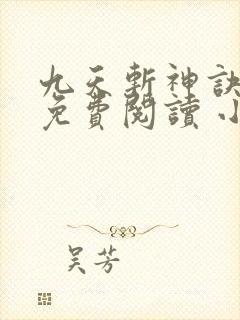 九天斬神訣
免費閱讀 小
吴芳